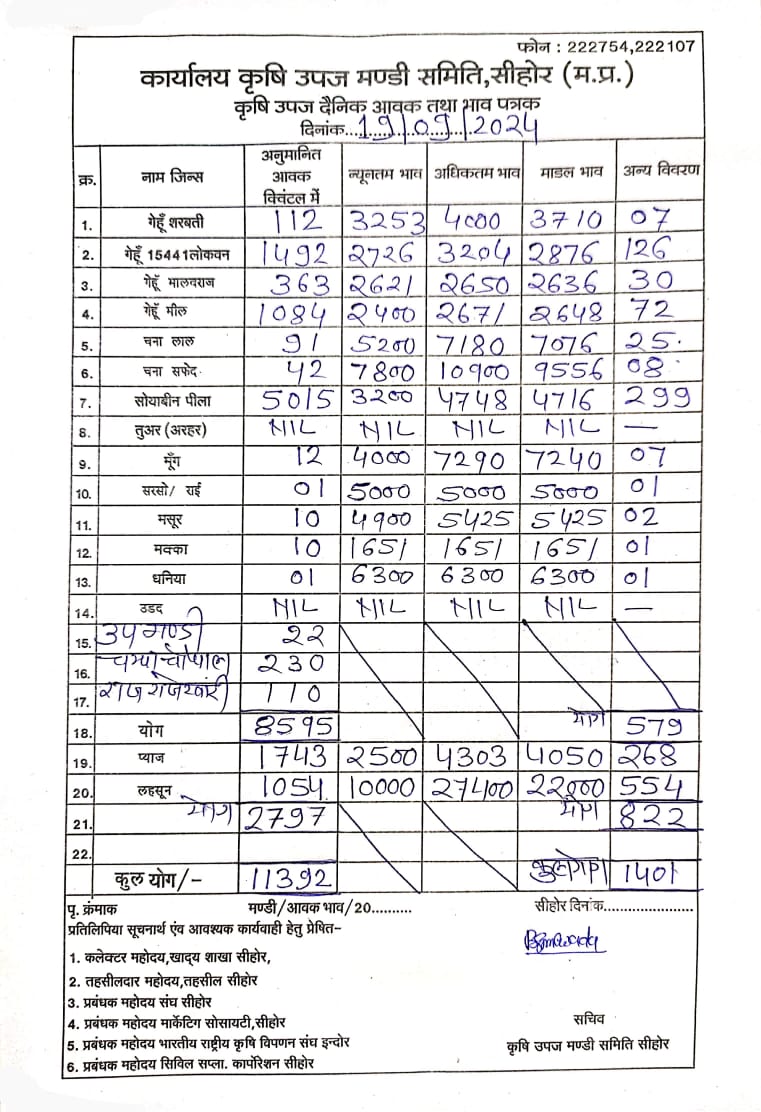 फोन : 222754,222107
कार्यालय कृषि उपज मण्डी समिति,सीहोर (म.प्र.)
कृषि उपज दैनिक आवक तथा भाव पत्रक
दिनांक....19/09/2024
क्र. नाम जिन्स अनुमानित आवक क्विंटल में न्यूनतम भाव अधिकतम भाव माडल भाव अन्य विवरण
1. गेहूँ शरबती 112 3253 4000 3710 07
2. गेहूँ 15441लोकवन 1492 2726 3204 2876 126
3. गेहूँ मालवराज 363 2621 2650 2636 30
4. गेहूँ मील 1084 2400 2671 2648 72
5. चना लाल 91 5200 7180 7076 25.
6. चना सफेद 42 7800 10900 9556 08
7. सोयाबीन पीला 5015 3200 4748 4716 299
8. तुअर (अरहर) NIL NIL NIL NIL —
9. मूँग 12 4000 7290 7240 07
10. सरसो/ राई 01 5000 5000 5000 01
11. मसूर 10 4900 5425 5425 02
12. मक्का 10 1651 1651 1651 01
13. धनिया 01 6300 6300 6300 01
14. उडद NIL NIL NIL NIL —
15. उपमण्डी 22
16. 230
17. 110
18. योग 8595 योग 579
19. प्याज 1743 2500 4303 4050 268
20. लहसून 1054 10000 27400 22000 554
21. योग 2797 योग 822
22.
कुल योग/- 11392 कुलयोग 1401
पृ. क्रंमाक मण्डी/आवक भाव/20.......... सीहोर दिनांक......................
प्रतिलिपिया सूचनार्थ एंव आवश्यक कार्यवाही हेतु प्रेषित-
1. कलेक्टर महोदय,खाद्य शाखा सीहोर,
2. तहसीलदार महोदय,तहसील सीहोर,
3. प्रबंधक महोदय संघ सीहोर
4. प्रबंधक महोदय मार्केटिंग सोसायटी,सीहोर
5. प्रबंधक महोदय भारतीय राष्ट्रीय कृषि विपणन संघ इन्दोर
6. प्रबंधक महोदय सिविल सप्ला. कार्पोरेशन सीहोर
सचिव
कृषि उपज मण्डी समिति सीहोर